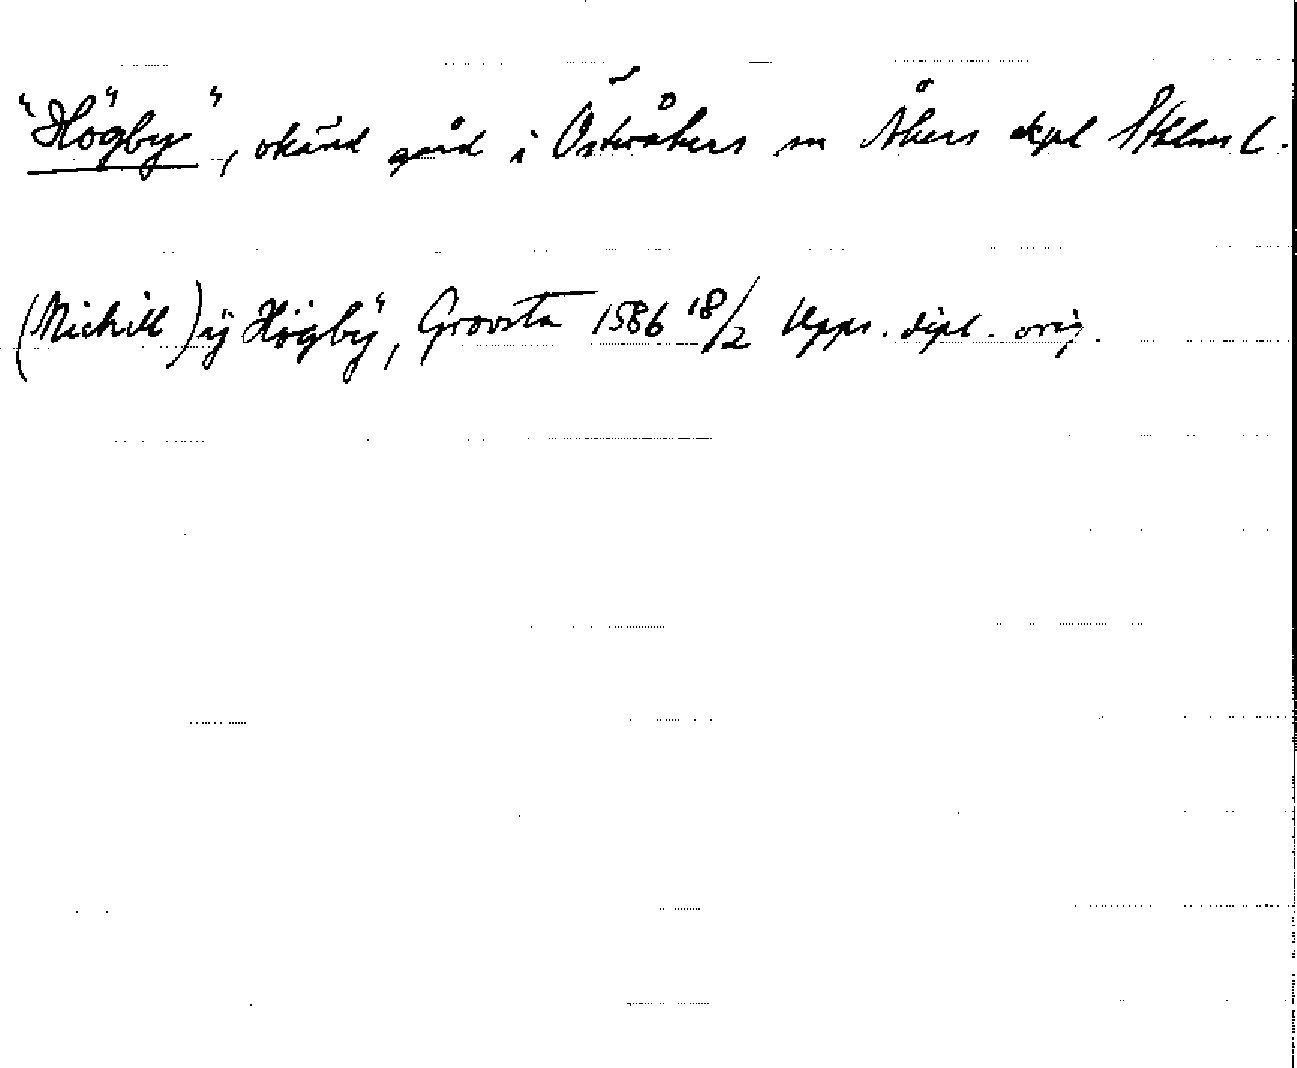 "Högby", okänd gård i Österåkers sn Åkers skpl Sthlms l.
(Michill) ÿ Högbÿ, Groosta 1586 18/2 Upps. dipl. orig.